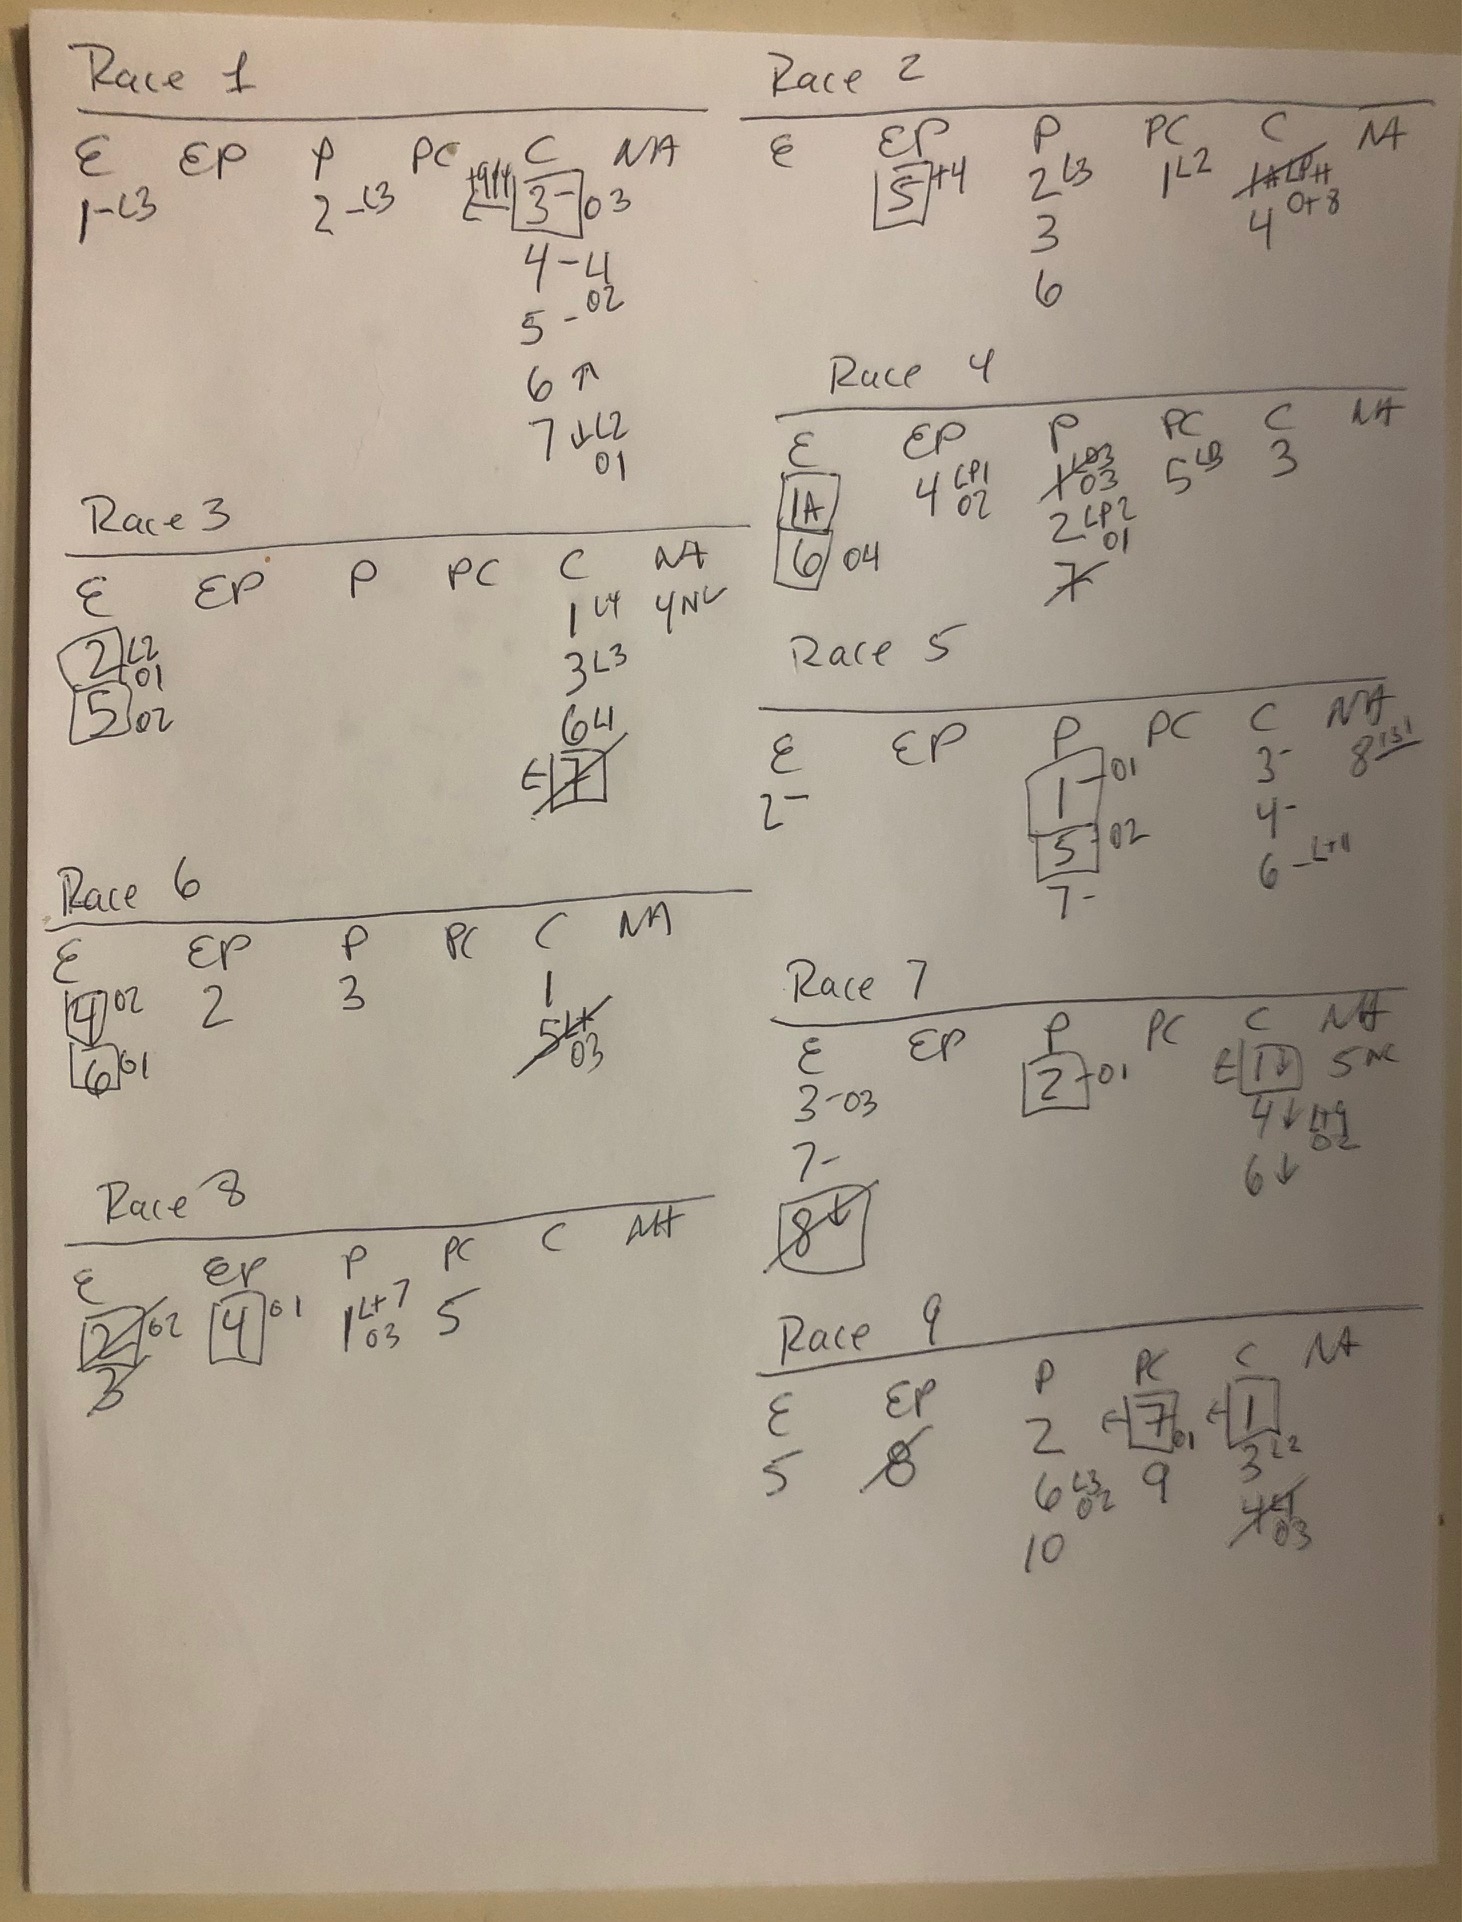 Race 1
E EP P PC C NA
1-L3 2-L3 3- 03
4-4
5-02
6 ↑
7 ↓ L2
01
Race 2
E EP P PC C NA
5 +4 2 L3 1 L2
3 4 0+8
6
Race 3
E EP P PC C NA
2 L2 01 1 L4 4 NC
5 02 3 L3
6 4
E 7
Race 4
E EP P PC C NA
1A 4 LP1 02 1 03 5 3
6 04 2 LP2 01
7
Race 5
E EP P PC C NA
2- 1-01 3- 8 1st
5-02 4-
7- 6-L+1
Race 6
E EP P PC C NA
4 02 2 3 1
6 01 5 L+ 03
Race 7
E EP P PC C NA
3-03 2-01 E 1↓ 5 NC
7- 4↓ L+9 02
8↓ 6↓
Race 8
E EP P PC C NA
2 02 4 01 1 L+7 03 5
3
Race 9
E EP P PC C NA
5 8 2 E 7 01 E 1
6 L3 02 9 3 L2
10 4 03